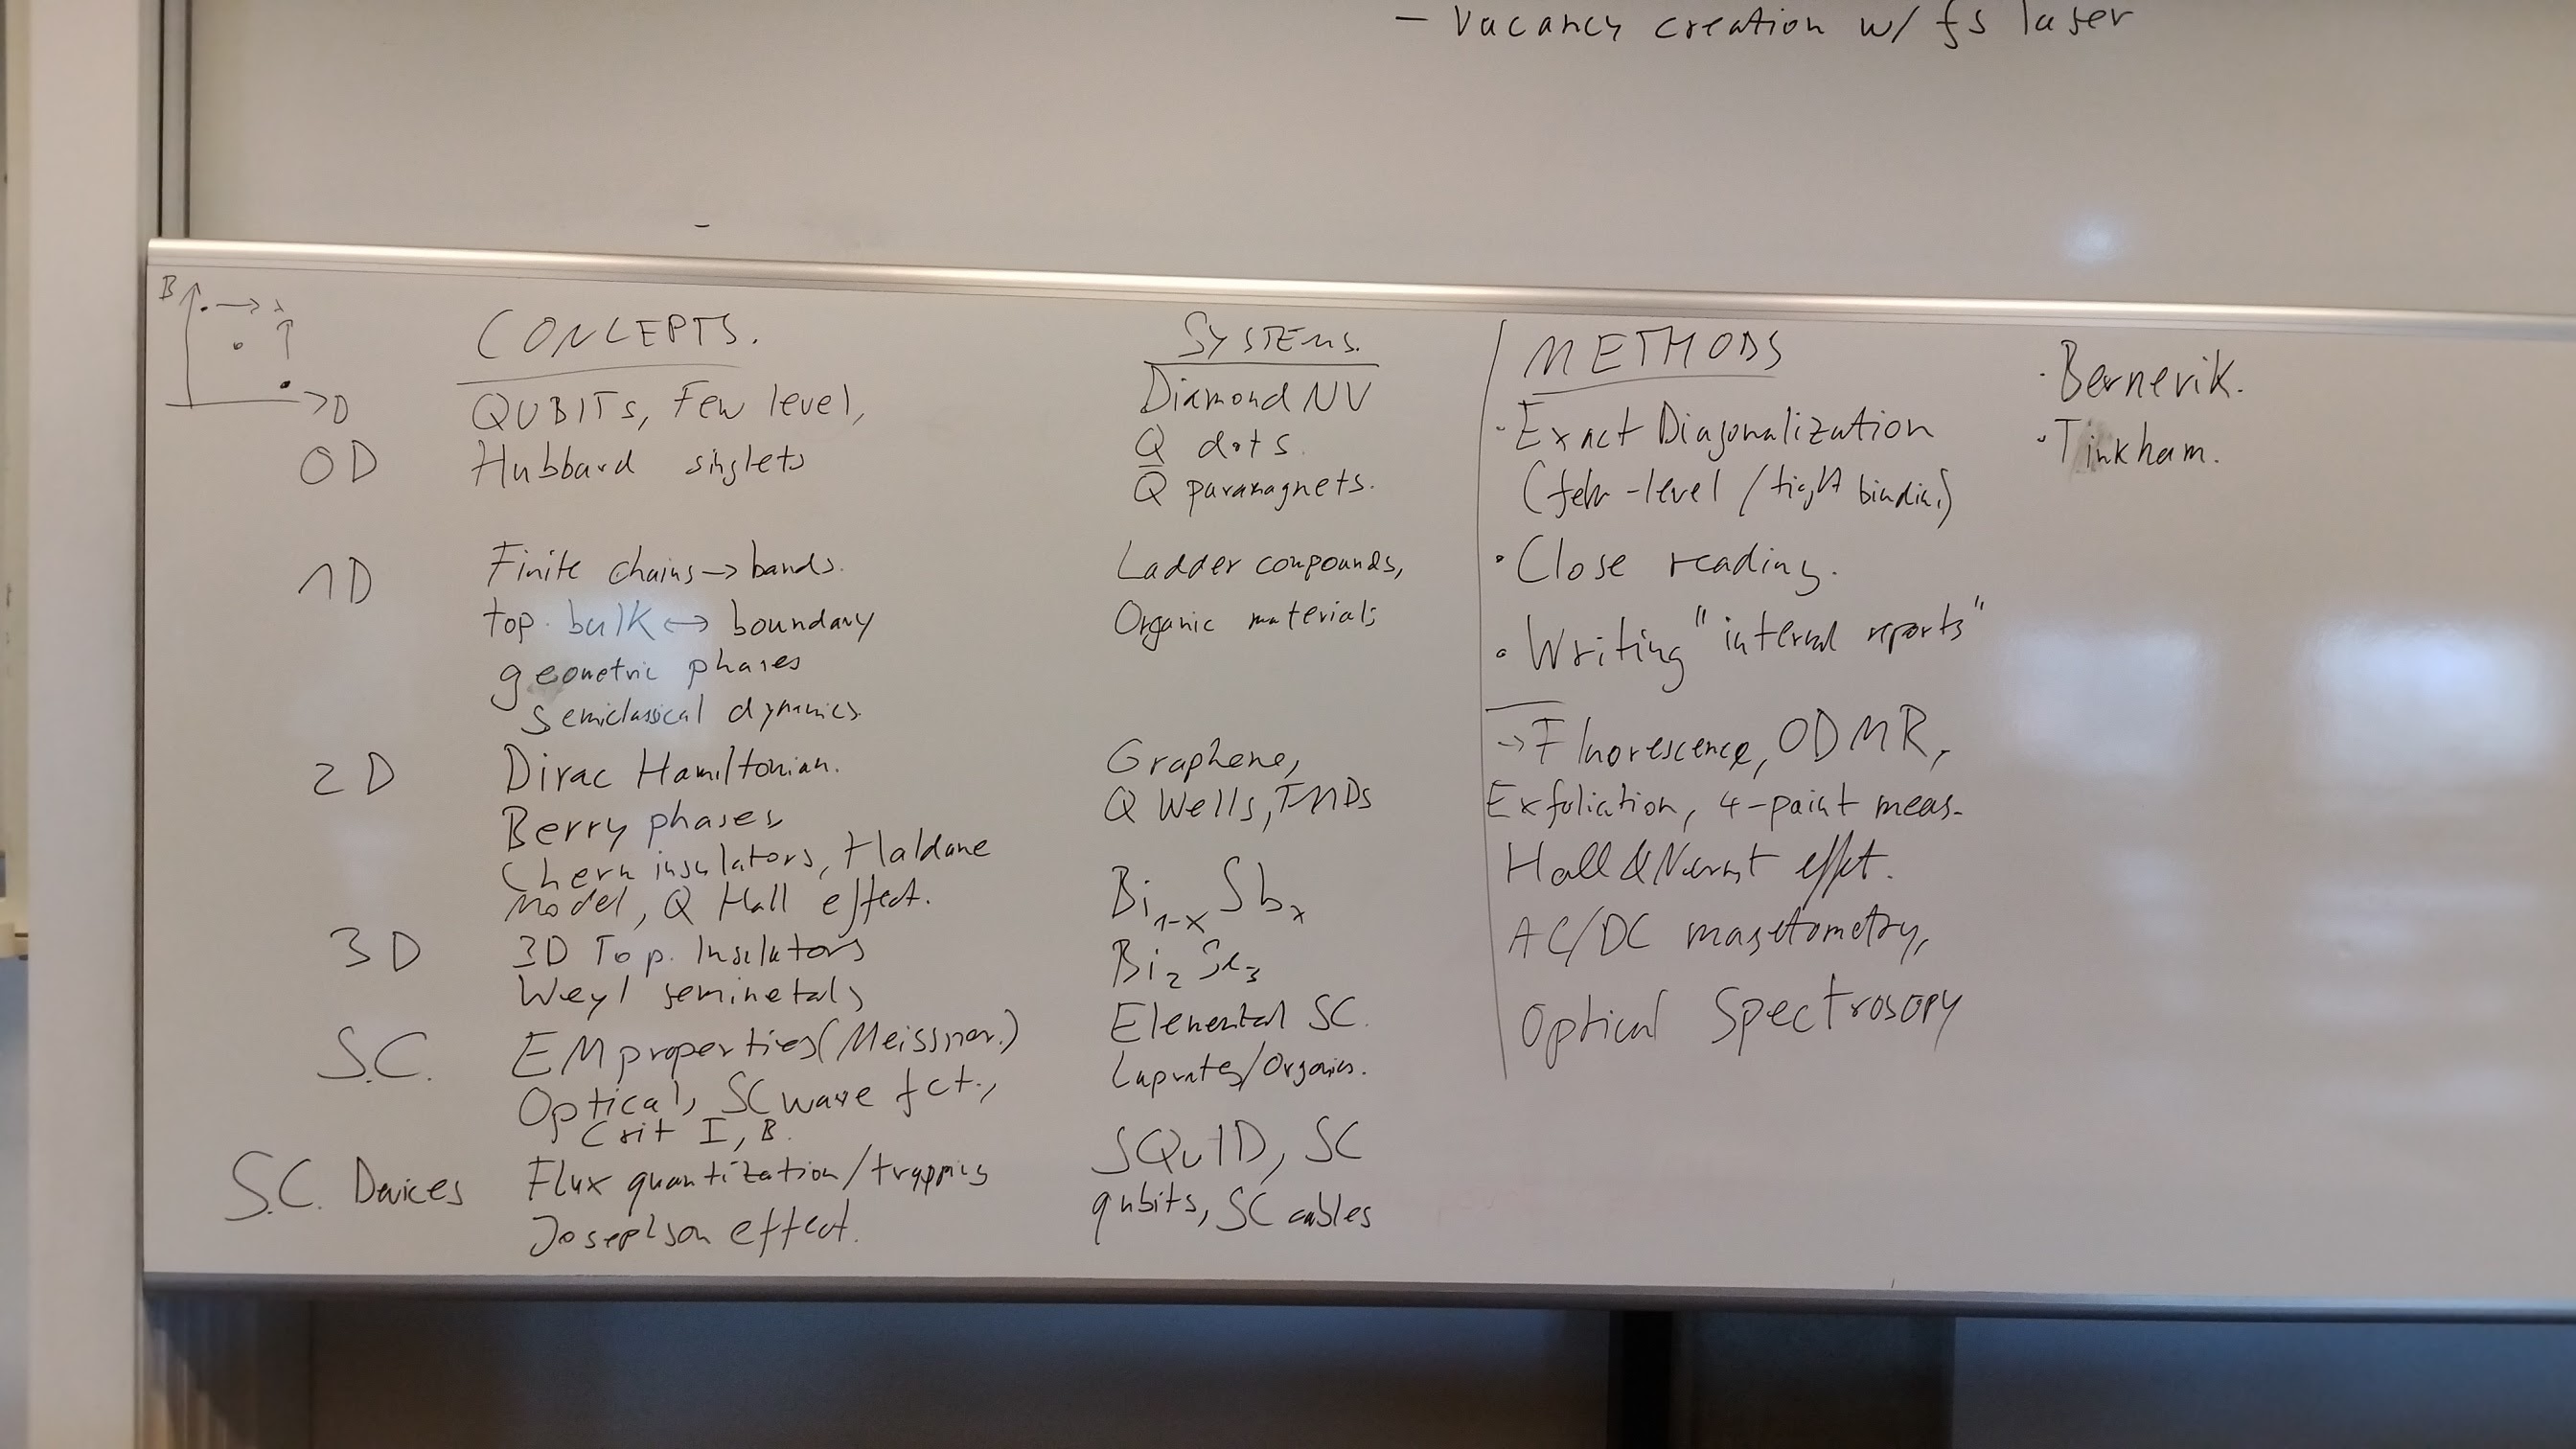 - Vacancy creation w/ fs laser
B
D
CONCEPTS.
0D
QUBITs, Few level,
Hubbard singlets
1D
Finite chains → bands.
top. bulk ↔ boundary
geometric phases
semiclassical dynamics
2D
Dirac Hamiltonian.
Berry phases
Chern insulators, Haldane
Model, Q Hall effect.
3D
3D Top. Insulators
Weyl semimetals
S.C.
EM properties (Meissner.)
Optical, SC wave fct.,
Crit I, B.
S.C. Devices
Flux quantization/trapping
Josephson effect.
SYSTEMS.
Diamond NV
Q dots
Q paramagnets.
Ladder compounds,
Organic materials
Graphene,
Q Wells, TMDs
Bi1-x Sbx
Bi2 Se3
Elemental SC.
Cuprates/Organics.
SQUID, SC
qubits, SC cables
METHODS
· Exact Diagonalization
(few-level / tight binding)
· Close reading.
· Writing "internal reports"
→ Fluorescence, ODMR,
Exfoliation, 4-point meas.
Hall & Nernst effect.
AC/DC magnetometry,
Optical Spectrosopy
· Bernevik.
· Tinkham.